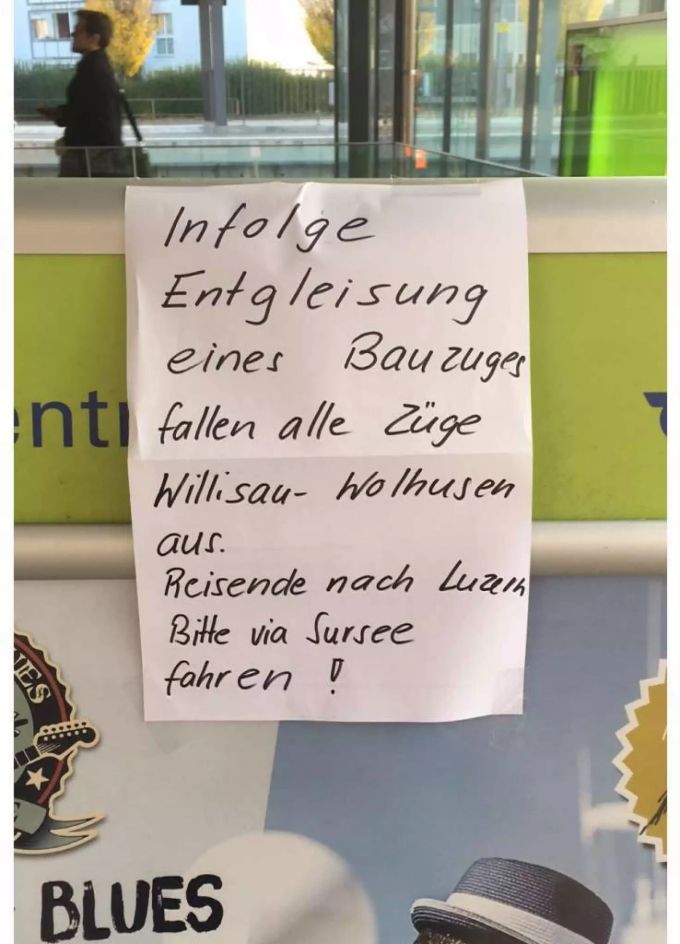 Infolge
Entgleisung
eines Bauzuges
fallen alle Züge
Willisau- Wolhusen
aus.
Reisende nach Luzern
Bitte via Sursee
fahren !
BLUES